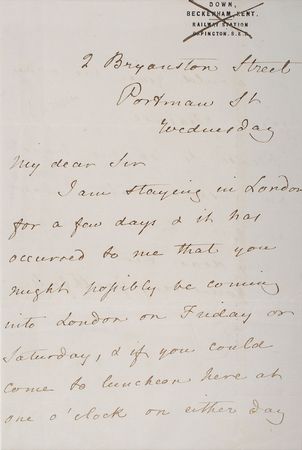 DOWN,
BECKENHAM, KENT.
RAILWAY STATION
ORPINGTON. S.E.R.
2 Bryanston Street
Portman St
Wednesday
My dear Sir
I am staying in London
for a few days & it has
occurred to me that you
might possibly be coming
into London on Friday or
Saturday, & if you could
come to luncheon here at
one o'clock on either day